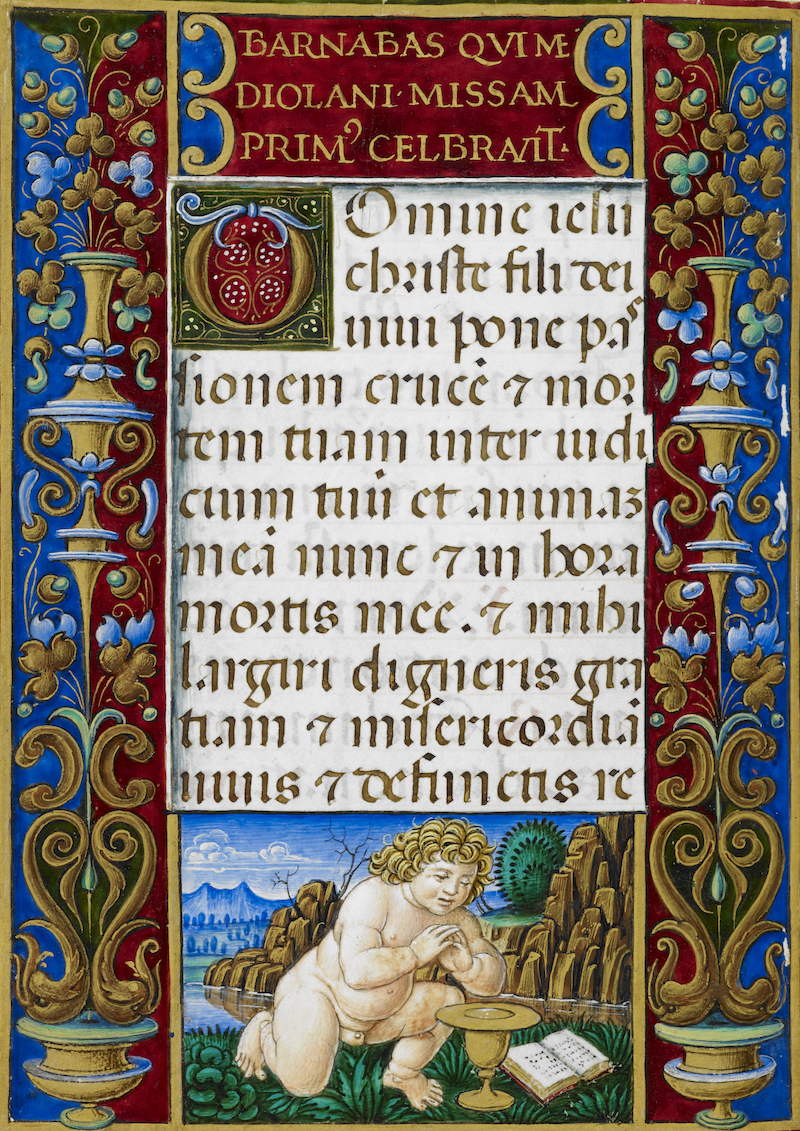 BARNABAS QVI ME
DIOLANI·MISSAM
PRIMꝰ CELBRAVIT·
DOmine iesu
christe fili dei
uiui pone pas
sionem crucē ⁊ mor
tem tuam inter iudi
cium tuū et animaz
meā nunc ⁊ in hora
mortis mee. ⁊ mihi
largiri digneris gra
tiam ⁊ misericordiā
uiuis ⁊ defunctis re